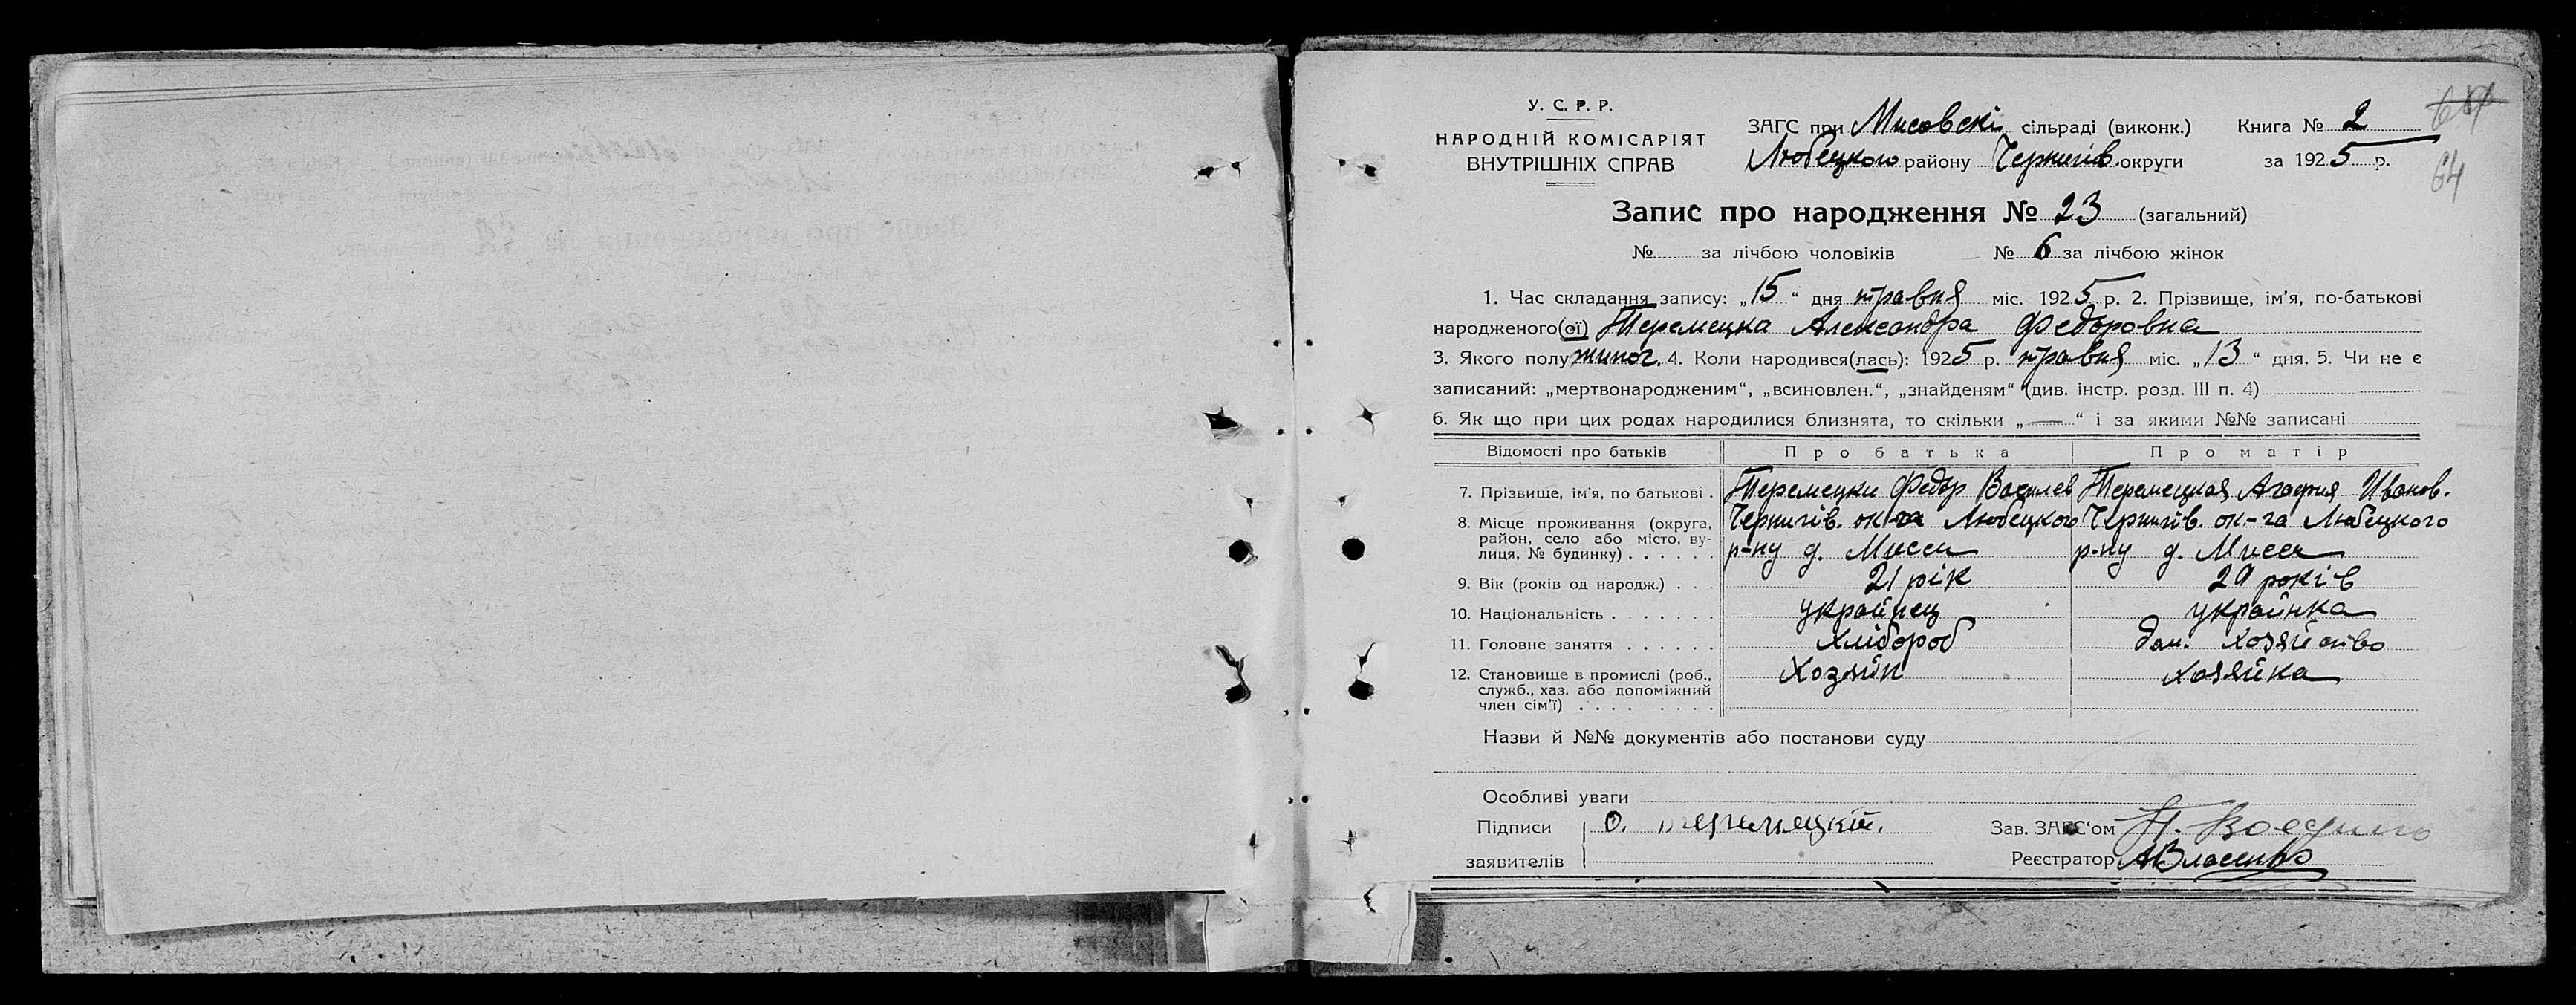 У. С. Р. Р.
НАРОДНІЙ КОМІСАРІЯТ
ВНУТРІШНІХ СПРАВ
ЗАГС при Мисовскі сільраді (виконк.) Книга № 2
Любецкого району Чернигів. округи за 1925 р.
64
Запис про народження № 23 (загальний)
№ за лічбою чоловіків № 6 за лічбою жінок
1. Час складання запису: „15“ дня травня міс. 1925 р. 2. Прізвище, ім’я, по-батькові
народженого(ої) Теремецка Александра Федоровна
3. Якого полу жиноч. 4. Коли народився(лась): 1925 р. травня міс. „13“ дня. 5. Чи не є
записаний: „мертвонародженим“, „всиновлен.“, „знайденям“ (див. інстр. розд. III п. 4)
6. Як що при цих родах народилися близнята, то скільки „—“ і за якими №№ записані
Відомості про батьків Про батька Про матір
7. Прізвище, ім’я, по батькові . Теремецки Федор Василев Теремецкая Агафия Иванов.
8. Місце проживання (округа, район, село або місто, вулиця, № будинку) . . . . . . Чернигів. ок-га Любецкого Чернигів. ок.-га Любецкого
р-ну д. Мисси р-ну д. Мисси
9. Вік (років од народж.) . . . 21 рік 29 років
10. Національність . . . . . . . украйнец украйнка
11. Головне заняття . . . . . . хлібороб дом. хозяйство
12. Становище в промислі (роб., служб., хаз. або допоміжний член сім’ї) . . . . . . . . Хозяйн хозяйка
Назви й №№ документів або постанови суду
Особливі уваги
Підписи заявителів Ѳ. Теремецкій.
Зав. ЗАГС‘ом
Реєстратор АВласенко